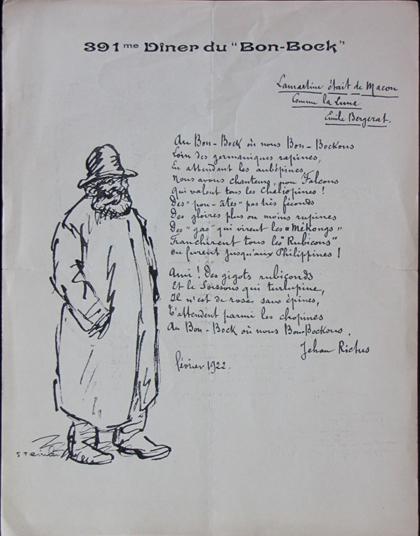 391me Dîner du "Bon-Bock"
Lamartine était de Macon
Comme la Lune
Emile Bergerat.
Au Bon-Bock où nous Bon-Bockons
Loin des germaniques rapines,
En attendant les aubépines,
Nous avons chanteurs pour Falcons
Qui valent tous les Chaliapines !
Des "pon-ates" pas très féconds
Des gloires plus ou moins rupines
Des "gas" qui virent les «Mékongs»
Franchirent tous les "Rubicons"
Ou furent jusqu'aux Philippines !
Ami ! Des gigots rubiconds
Et le Soissons qui turlupine,
Il n'est de roses sans épines,
T'attendent parmi les chopines
Au Bon-Bock où nous Bon-Bockons.
Jehan Rictus
février 1922.